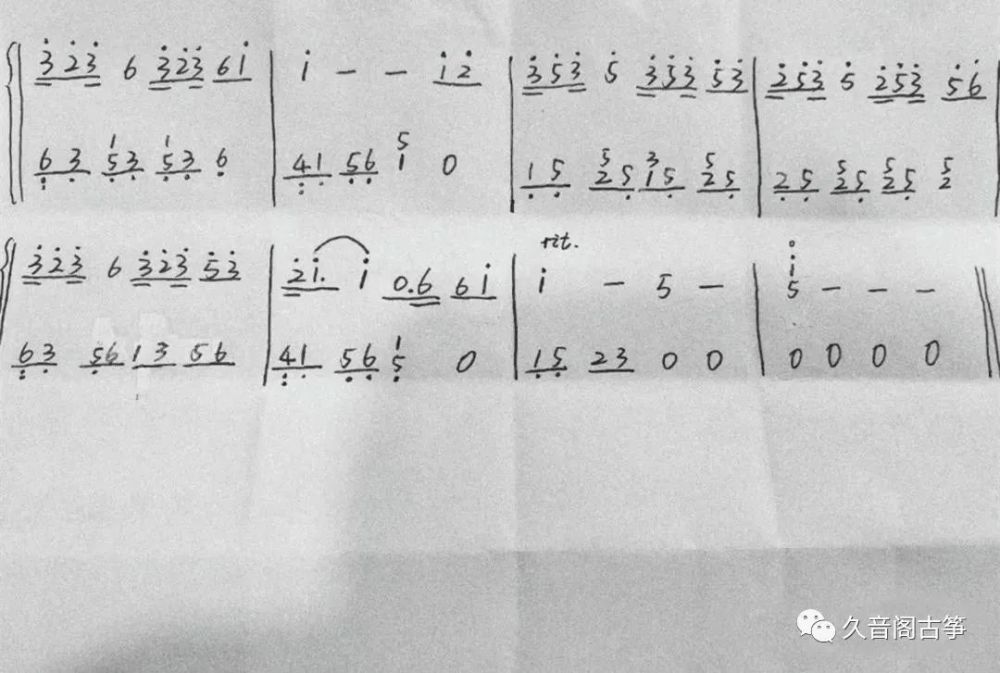 3̇2̇3̇ 6 3̇2̇3̇ 61̇ | 1̇ - - 1̇2̇ | 3̇5̇3̇ 5̇ 3̇5̇3̇ 5̇3̇ | 2̇5̇3̇ 5̇ 2̇5̇3̇ 5̇6̇ |
63 1/53 1/53 6 | 41 56 5/1 0 | 15 5/25 3/15 5/25 | 25 5/25 5/25 5/2 |
3̇2̇3̇ 6 3̇2̇3̇ 5̇3̇ | 2̇1̇. 1̇ 0.6 61̇ | rit. 1̇ - 5 - | 1̇/5 - - - ‖
63 56 13 56 | 41 56 1/5 0 | 15 23 0 0 | 0 0 0 0 ‖
久音阁古筝